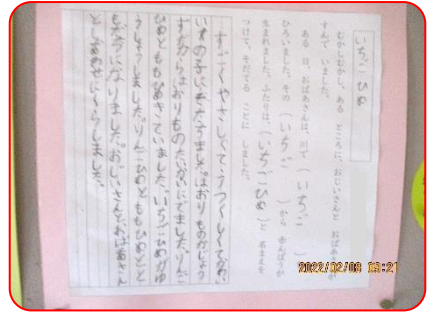 いちごひめ
むかしむかし、ある ところに、おじいさんと おばあさんが
すんで いました。
ある 日、おばあさんは、川で (いちご)
ひろいました。その (いちご) から 赤んぼうが
生まれました。ふたりは、(いちごひめ)と 名まえを
つけて、そだてる ことに しました。
すごくやさしくてうつくしくてかわ
いい女の子にそだちました。はおりものがじょう
ずだからおりものたいかいにでました。りんご
ひめとももひめもきていました。いちごひめがゆ
うしょうしました。りんごひめとももひめとと
もだちになりました。おじいさんとおばあさん
としあわせにくらしました。
2022/02/08 13:21